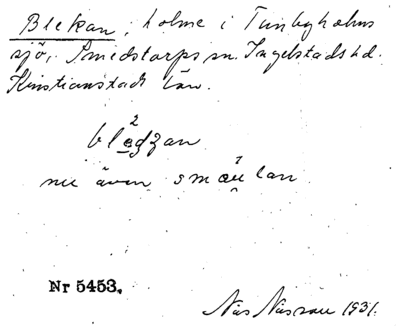 Blekan, holme i Tunbyholms
sjö, Smedstorps sn. Ingelstads hd.
Kristianstads län.
2
nu även
Nr 5453.
Nils Nilsson 1931.